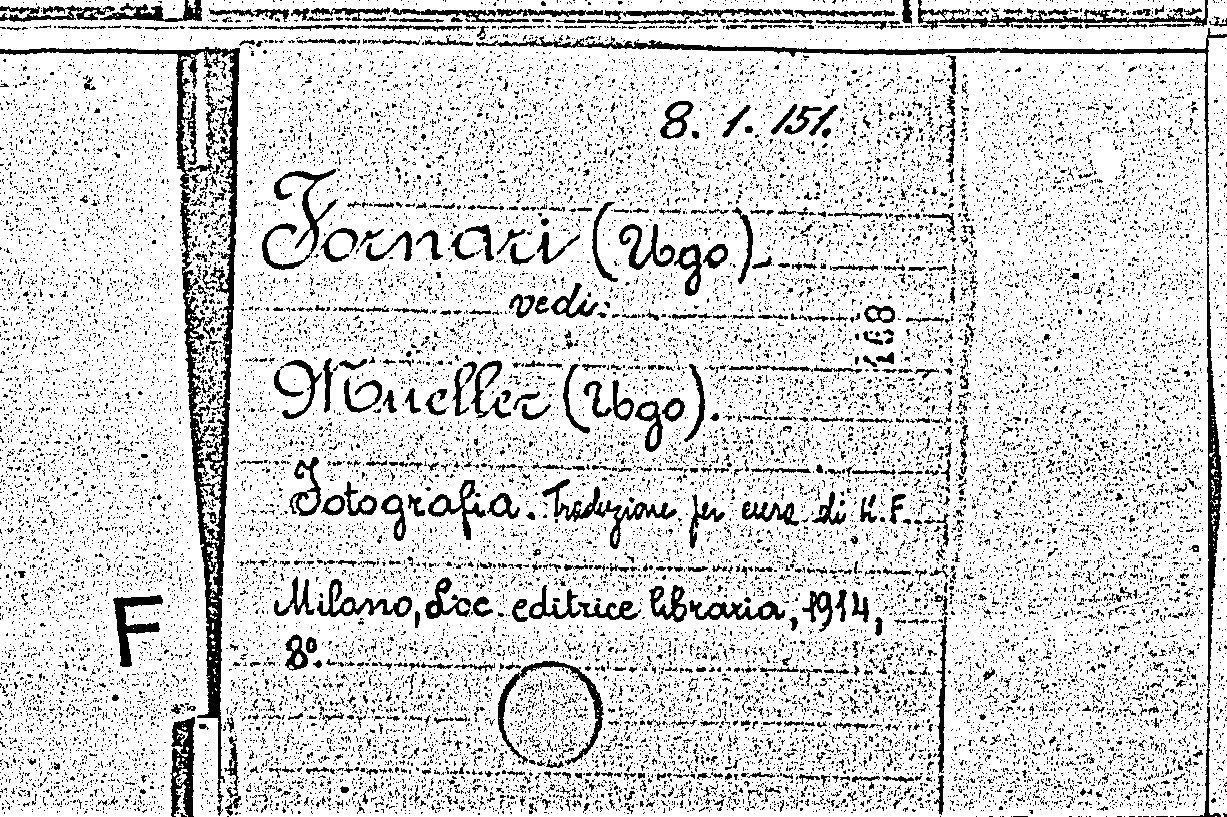 8. 1. 151.
Fornari (Ugo).
vedi:
468
Mueller (Ugo).
Fotografia. Traduzione per cura di U. F.
Milano, Soc. editrice libraria, 1914,
8º.
F